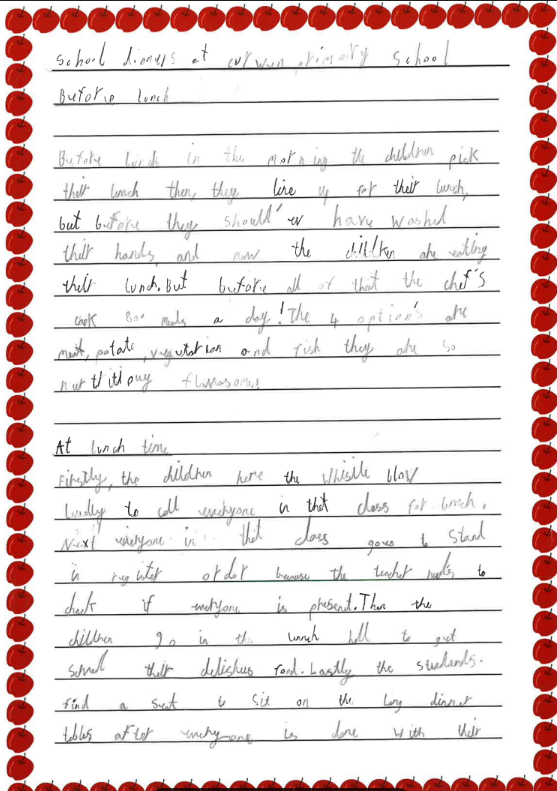 School dinners at curwen primary school
Before lunch
Before lunch in the morning the children pick
their lunch then, they line up for their lunch,
but before they should'ev have washed
their hands, and now the children are eating
their lunch. But before all of that the chef's
cook 800 meals a day! The 4 option's are
meat, potato, vegetarian and fish they are so
At lunch time
Firstly, the children here the whistle blow
loudly to call everyone in that class for lunch.
Next everyone in that class goes to stand
in register order because the teacher needs to
check if everyone is present. Then the
children go in the lunch hall to get
their delishus food. Lastly the students.
find a seat to sit on the long dinner
tables after everyone is done with their